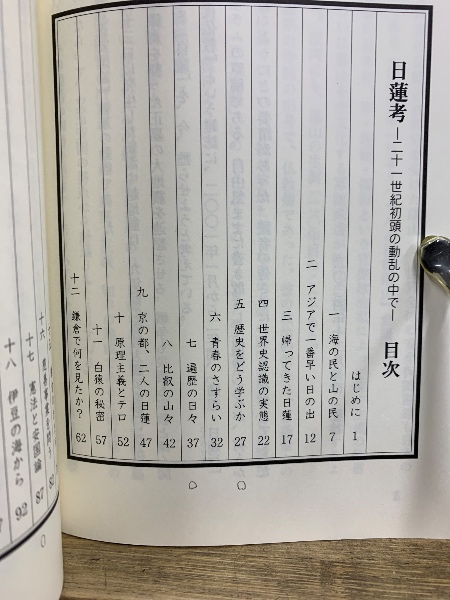 日蓮考―二十一世紀初頭の動乱の中で― 目次
はじめに 1
一 海の民と山の民 7
二 アジアで一番早い日の出 12
三 帰ってきた日蓮 17
四 世界史認識の実態 22
五 歴史をどう学ぶか 27
六 青春のさすらい 32
七 遍歴の日々 37
八 比叡の山々 42
九 京の都、二人の日蓮 47
十 原理主義とテロ 52
十一 白猿の秘密 57
十二 鎌倉で何を見たか? 62
十七 憲法と安国論 87
十八 伊豆の海から 92